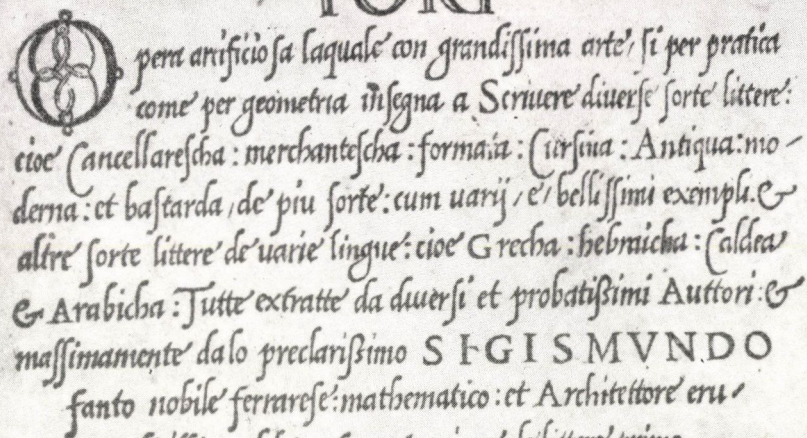 Opera artificiosa laquale con grandissima arte, si per pratica
come per geometria insegna a Scriuere diuerse sorte littere:
cioe Cancellarescha: merchantescha: formata: Cursiua: Antiqua: mo-
derna: et bastarda, de piu sorte: cum uarij, e, bellissimi exempli. &
altre sorte littere de uarie lingue: cioe Grecha: hebraicha: Caldea
& Arabicha: Tutte extratte da diuersi et probatißimi Auttori: &
massimamente dalo preclarißimo SIGISMVNDO
fanto nobile ferrarese: mathematico: et Architettore eru-